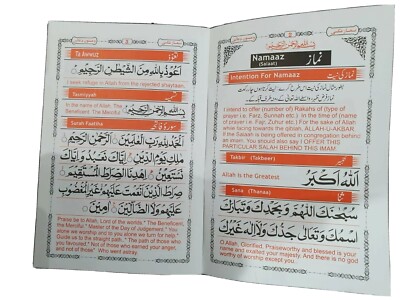 Ta'Awwuz
تعوذ
اَعُوْذُ بِاللّٰهِ مِنَ الشَّيْطٰنِ الرَّجِيْمِ
I seek refuge in Allah from the rejected shaytaan.
Tasmiyyah
In the name of Allah, The
Beneficent, The Merciful
بِسْمِ اللّٰهِ الرَّحْمٰنِ الرَّحِيْمِ
Surah Faatiha
سورة فاتحہ
اَلْحَمْدُ لِلّٰهِ رَبِّ الْعٰلَمِيْنَ الرَّحْمٰنِ الرَّحِيْمِ
مٰلِكِ يَوْمِ الدِّيْنِ اِيَّاكَ نَعْبُدُ وَاِيَّاكَ
نَسْتَعِيْنُ اِهْدِنَا الصِّرَاطَ الْمُسْتَقِيْمَ
صِرَاطَ الَّذِيْنَ اَنْعَمْتَ عَلَيْهِمْ غَيْرِ الْمَغْضُوْبِ
عَلَيْهِمْ وَلَا الضَّآلِّيْنَ
Praise be to Allah, Lord of the worlds, The Beneficent,
the Merciful.* Master of the Day of Judgement.* You
alone we worship and to you alone we turn for help.*
Guide us to the straight path.* The path of those who
you favoured.* Not of those who earned your anger
and not of those* Who went astray.
بِسْمِ اللّٰهِ الرَّحْمٰنِ الرَّحِيْمِ
Namaaz
(Salaat)
نماز
Intention For Namaaz
نماز کی نیت
I intend to offer (number of) Rakahs of (type of
prayer i.e. Farz, Sunnah etc.). In the time of (name
of prayer i.e. Fajr, Zuhr). For the sake of Allah
while facing towards the qiblah, ALLAH-U-AKBAR
if the Salaat is being offered in congregation behind
an imam. You should also say I OFFER THIS
PARTICULAR SALAH BEHIND THIS IMAM.
Takbir (Takbeer)
تکبیر
Allah Is the Greatest
اَللّٰهُ اَكْبَرُ
Sana (Thanaa)
ثنا
سُبْحٰنَكَ اللّٰهُمَّ وَبِحَمْدِكَ وَتَبَارَكَ
اسْمُكَ وَتَعَالٰى جَدُّكَ وَلَآ اِلٰهَ غَيْرُكَ
O Allah, Glorified, Praiseworthy and blessed is your
name and exalted your Majesty, and there is no god
worthy of worship except you.